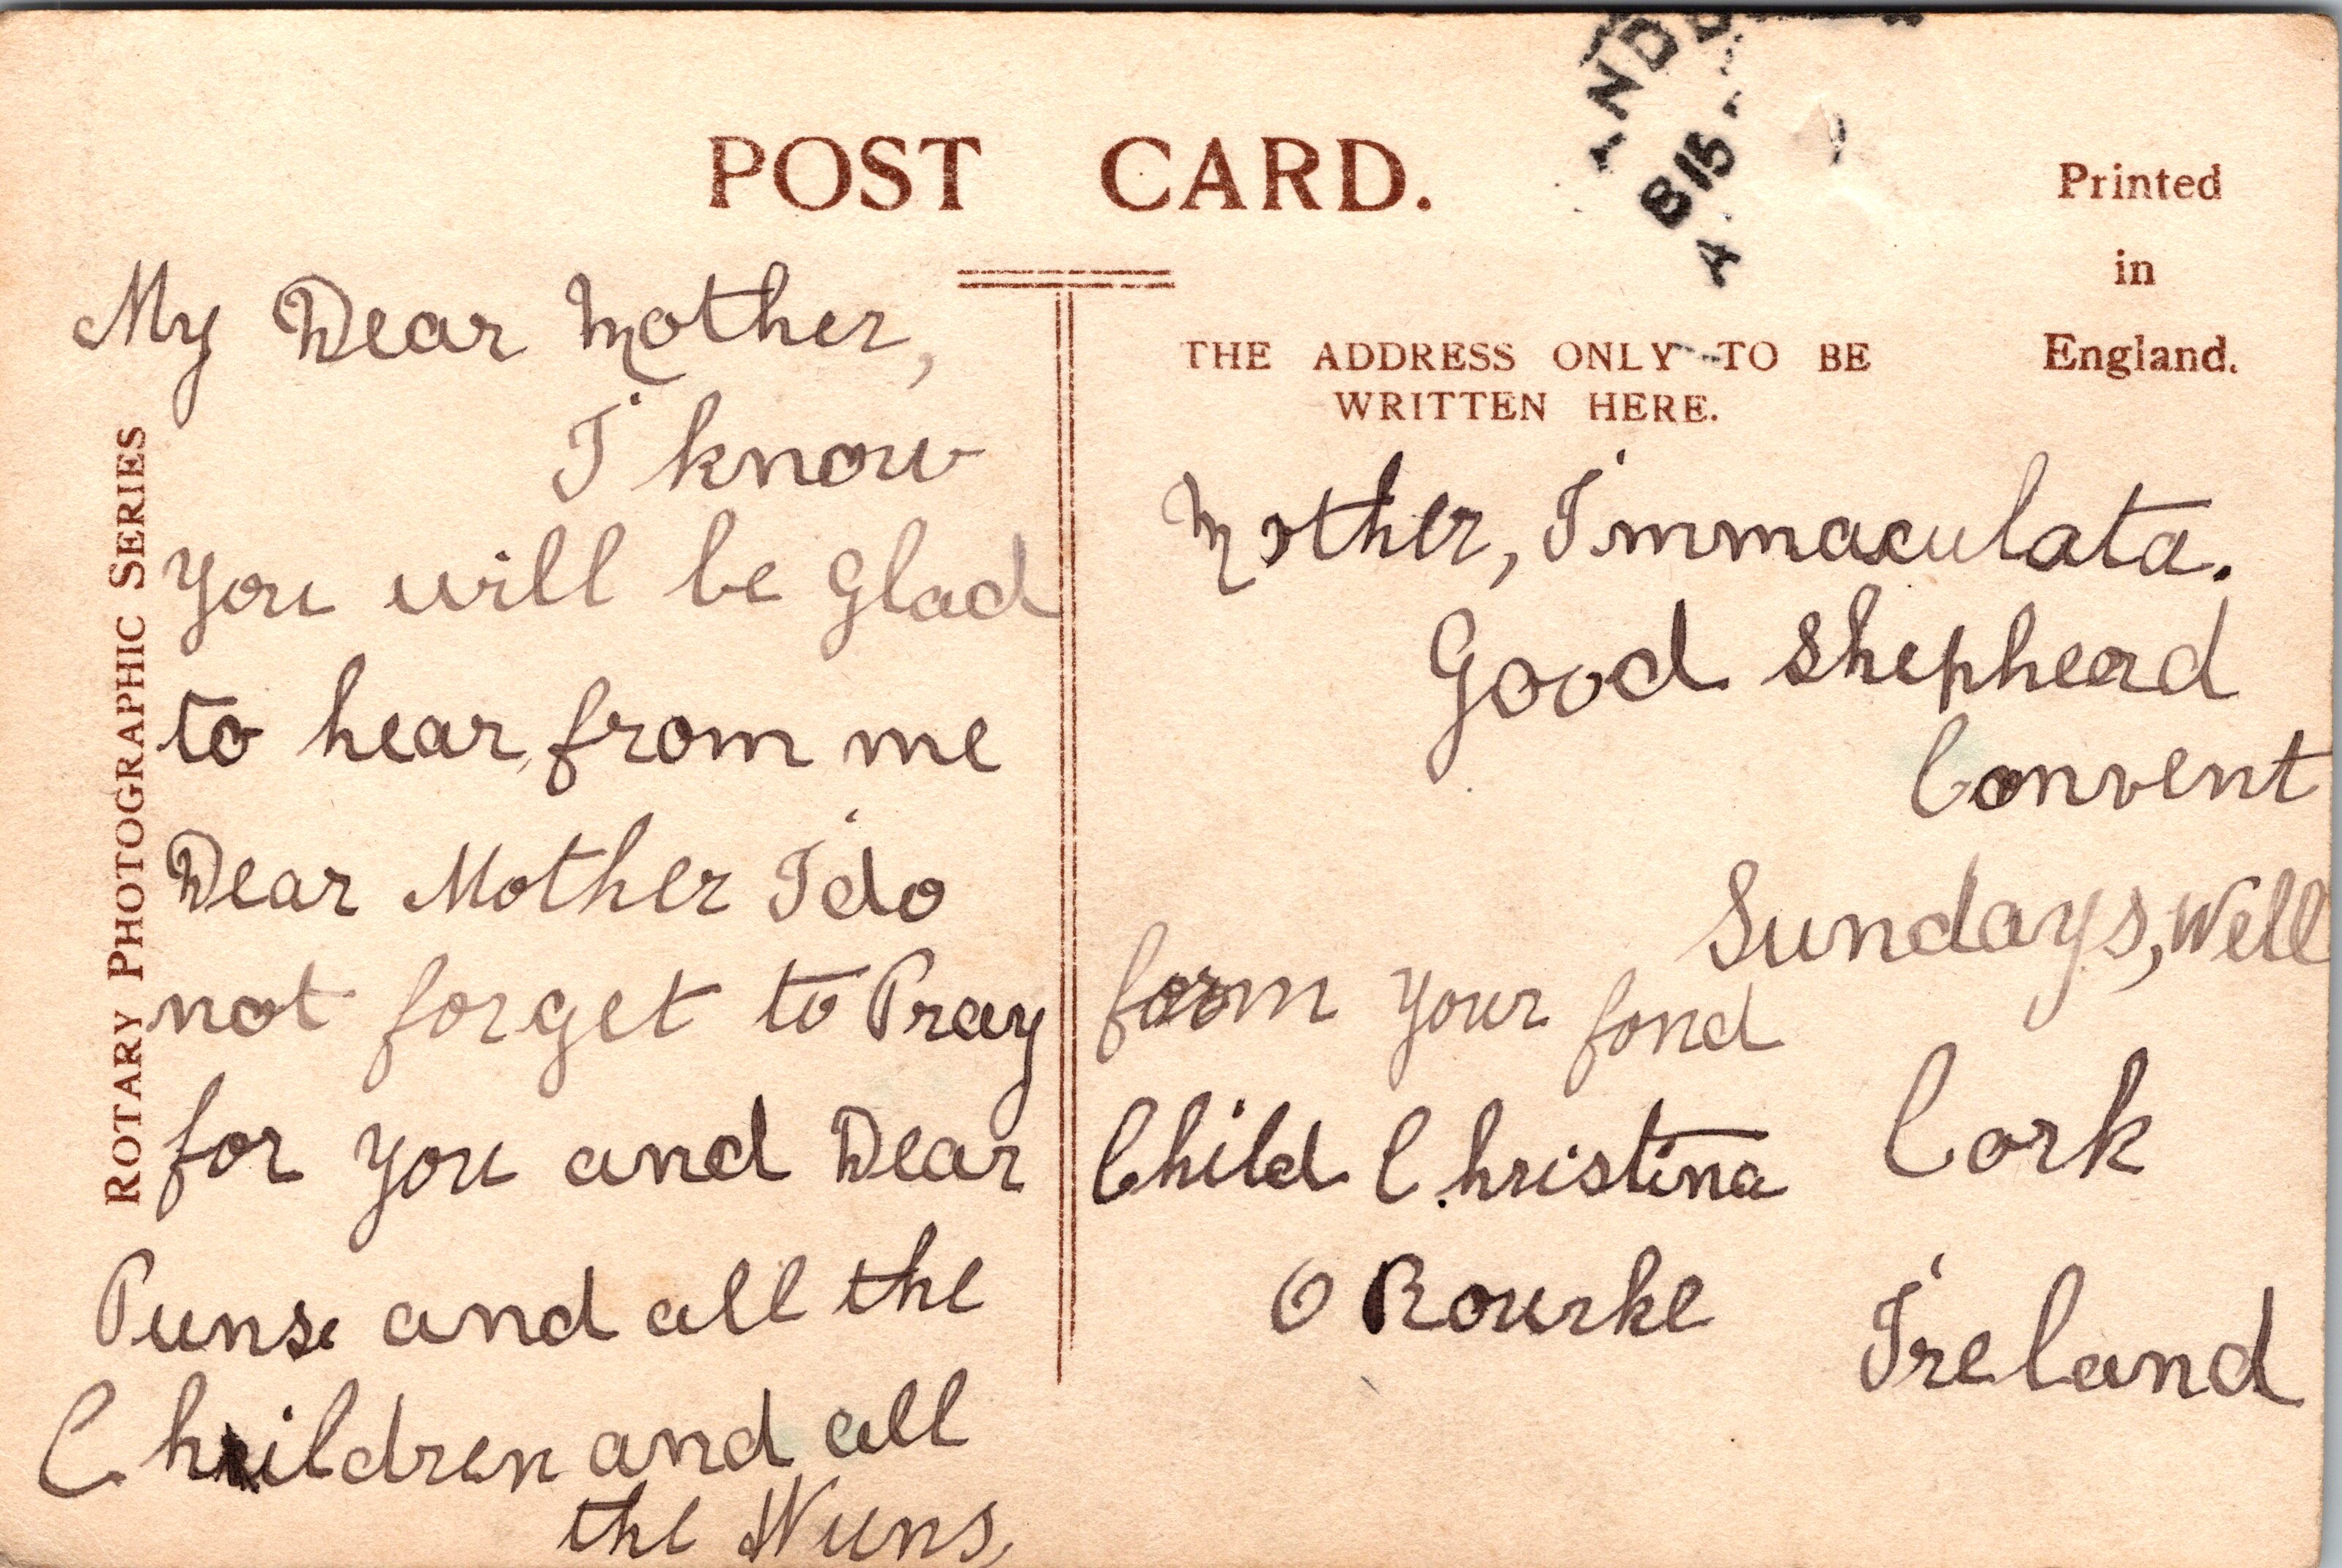 POST CARD.
Printed
in
England.
THE ADDRESS ONLY TO BE
WRITTEN HERE.
ROTARY PHOTOGRAPHIC SERIES
My Dear Mother,
I know
you will be glad
to hear from me
Dear Mother I do
not forget to Pray
for you and Dear
Punse and all the
Children and all
the Nuns,
form your fond
Child Christina
O Rourke
Mother, Immaculata.
Good Shepherd
Convent
Sundays, Well
Cork
Ireland
815
A